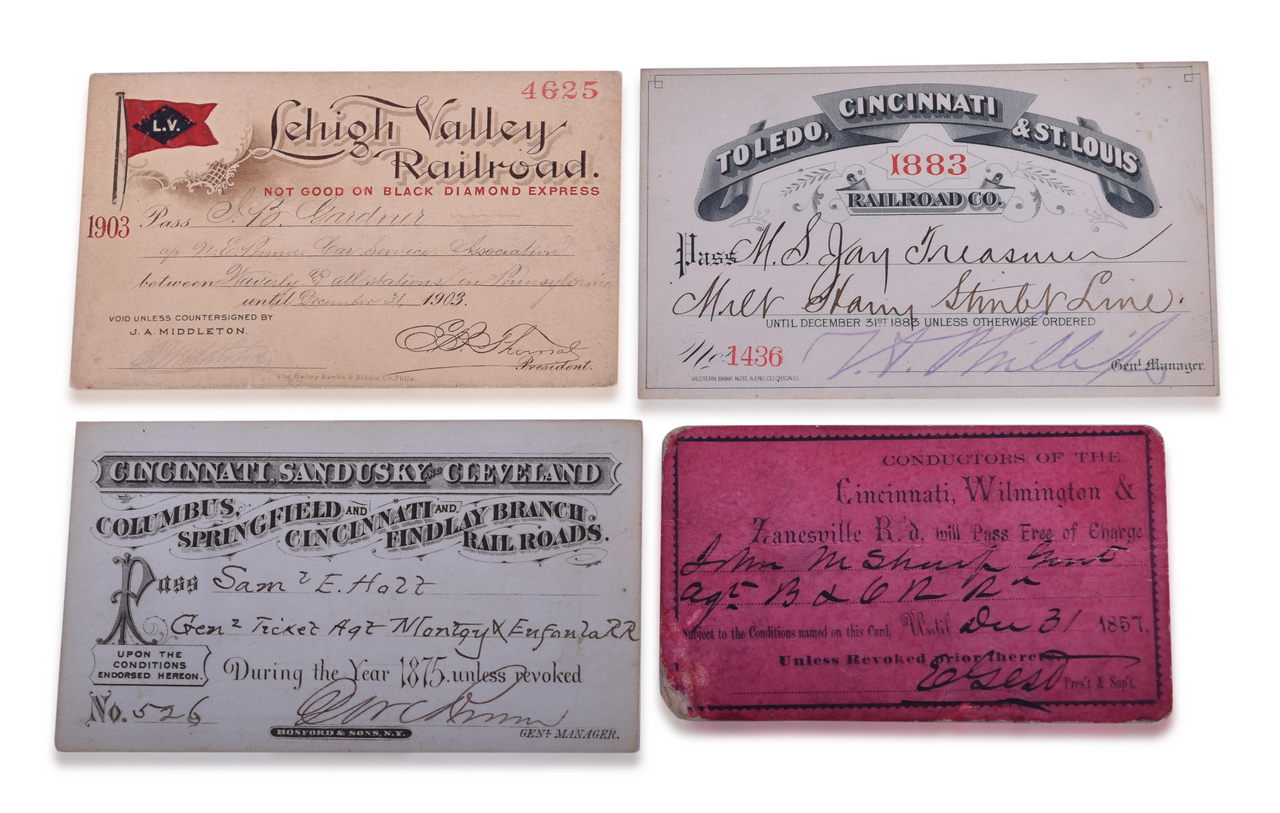 4625
L.V.
Lehigh Valley
Railroad.
NOT GOOD ON BLACK DIAMOND EXPRESS
1903 Pass J. B. Gardner
Car Service Association
between Waverly & all stations in Pennsylvania
until December 31 1903.
VOID UNLESS COUNTERSIGNED BY
J. A. MIDDLETON.
E. B. Thomas
President.
TOLEDO, CINCINNATI & ST. LOUIS
1883
RAILROAD CO.
Pass M. S. Jay Treasurer
Line.
UNTIL DECEMBER 31ST 1883 UNLESS OTHERWISE ORDERED
No. 1436
Genl. Manager.
WESTERN BANK NOTE & ENG. CO. CHICAGO.
CINCINNATI, SANDUSKY AND CLEVELAND
COLUMBUS, SPRINGFIELD AND CINCINNATI AND FINDLAY BRANCH
RAIL ROADS.
Pass Saml E. Holt
Genl Ticket Agt Montgy & Eufaula RR
UPON THE
CONDITIONS
ENDORSED HEREON.
During the Year 1875. unless revoked
No. 526
HOSFORD & SONS, N.Y.
GENL. MANAGER.
CONDUCTORS OF THE
Cincinnati, Wilmington &
Zanesville R.'d. will Pass Free of Charge
John M Sharp Genl
Agt B & O R Rd
Subject to the Conditions named on this Card. Until Dec 31 1857.
Unless Revoked prior thereto.
E Gest Pres't & Sup't.